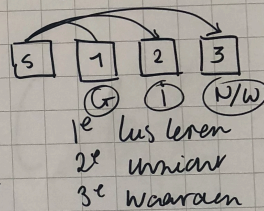 S 1 2 3
G 1 N/W
1e lus leren
2e
3e waarden